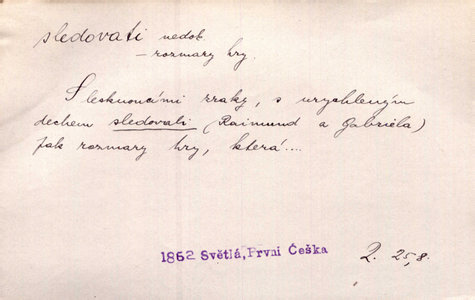 sledovati nedok.
– rozmary hry.
S lesknoucími zraky, s urychleným
dechem sledovali (Raimund a Gabriela)
jak rozmary hry, která....
1862 Světlá, První Češka
2. 25,8.